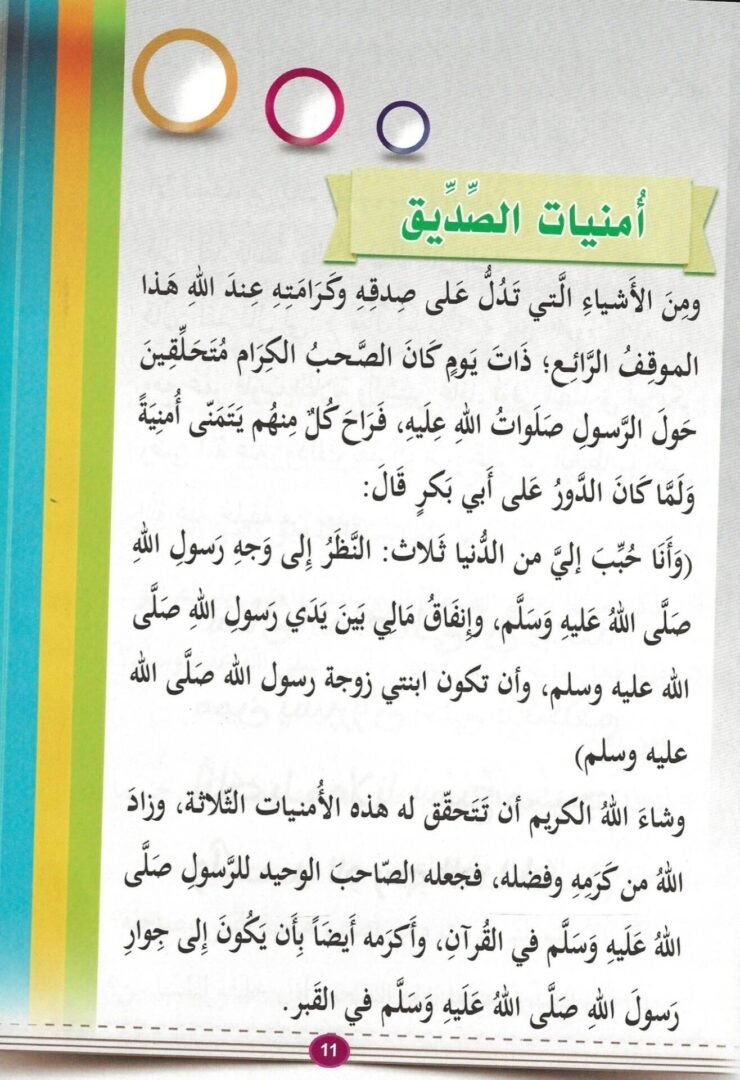 أُمنيات الصِّدِّيق
ومِنَ الأَشياءِ الَّتي تَدُلُّ عَلى صِدقِهِ وكَرَامَتِهِ عِندَ اللهِ هَذا
الموقِفُ الرَّائِع؛ ذَاتَ يَومٍ كَانَ الصَّحبُ الكِرَام مُتَحَلِّقِينَ
حَولَ الرَّسولِ صَلَواتُ اللهِ عِلَيهِ، فَرَاحَ كُلٌ مِنهُم يَتَمَنّى أُمنِيَةً
وَلَمَّا كَانَ الدَّورُ عَلى أَبي بَكرٍ قَالَ:
(وَأَنَا حُبِّبَ إليَّ من الدُّنيا ثَلاث: النَّظَرُ إلى وَجهِ رَسولِ اللهِ
صَلَّى اللهُ عَليهِ وَسَلَّم، وإنفَاقُ مَالِي بَينَ يَدَي رَسولِ اللهِ صَلَّى
الله عليه وسلم، وأن تكون ابنتي زوجة رسول الله صَلَّى الله
عليه وسلم)
وشاءَ اللهُ الكريم أن تَتَحقّق له هذه الأُمنيات الثّلاثة، وزادَ
اللهُ من كَرَمِهِ وفضله، فجعله الصّاحبَ الوحيد للرَّسولِ صَلَّى
اللهُ عَلَيهِ وَسَلَّم في القُرآنِ، وأَكرَمه أَيضَاً بِأَن يَكُونَ إلى جِوارِ
رَسولَ اللهِ صَلَّى اللهُ عَلَيهِ وَسَلَّم في القَبر.
11